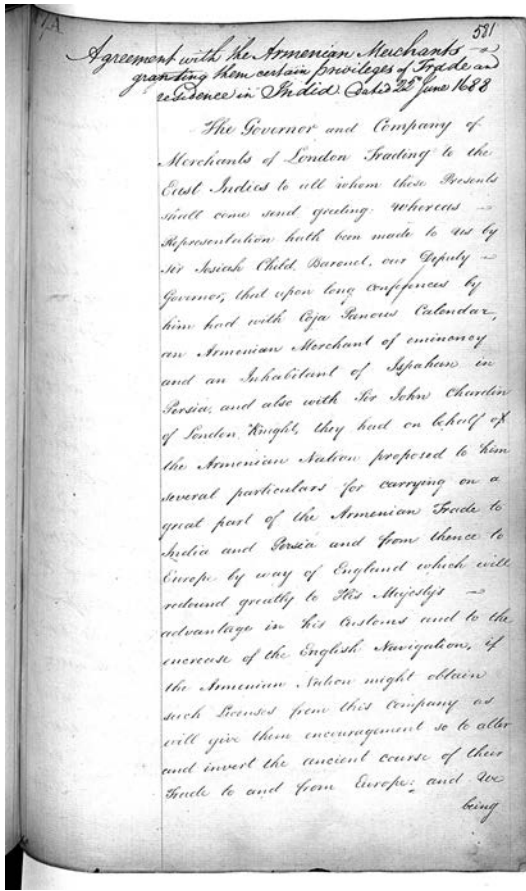 581
Agreement with the Armenian Merchants
granting them certain privileges of Trade and
residence in India. Dated 22d June 1688
The Governor and Company of
Merchants of London Trading to the
East Indies to all whom these Presents
shall come send greeting: Whereas
Representation hath been made to us by
Sir Josiah Child, Baronet, our Deputy
Governor, that upon long conferences by
him had with Coja Panous Calendar,
an Armenian Merchant of eminency
and an Inhabitant of Ispahan in
Persia, and also with Sir John Chardin
of London, Knight, they had on behalf of
the Armenian Nation proposed to him
several particulars for carrying on a
great part of the Armenian Trade to
India and Persia and from thence to
Europe by way of England which will
redound greatly to His Majesty's
advantage in his Customs and to the
encrease of the English Navigation, if
the Armenian Nation might obtain
such Licenses from this Company as
will give them encouragement so to alter
and invert the ancient course of their
Trade to and from Europe: and We
being